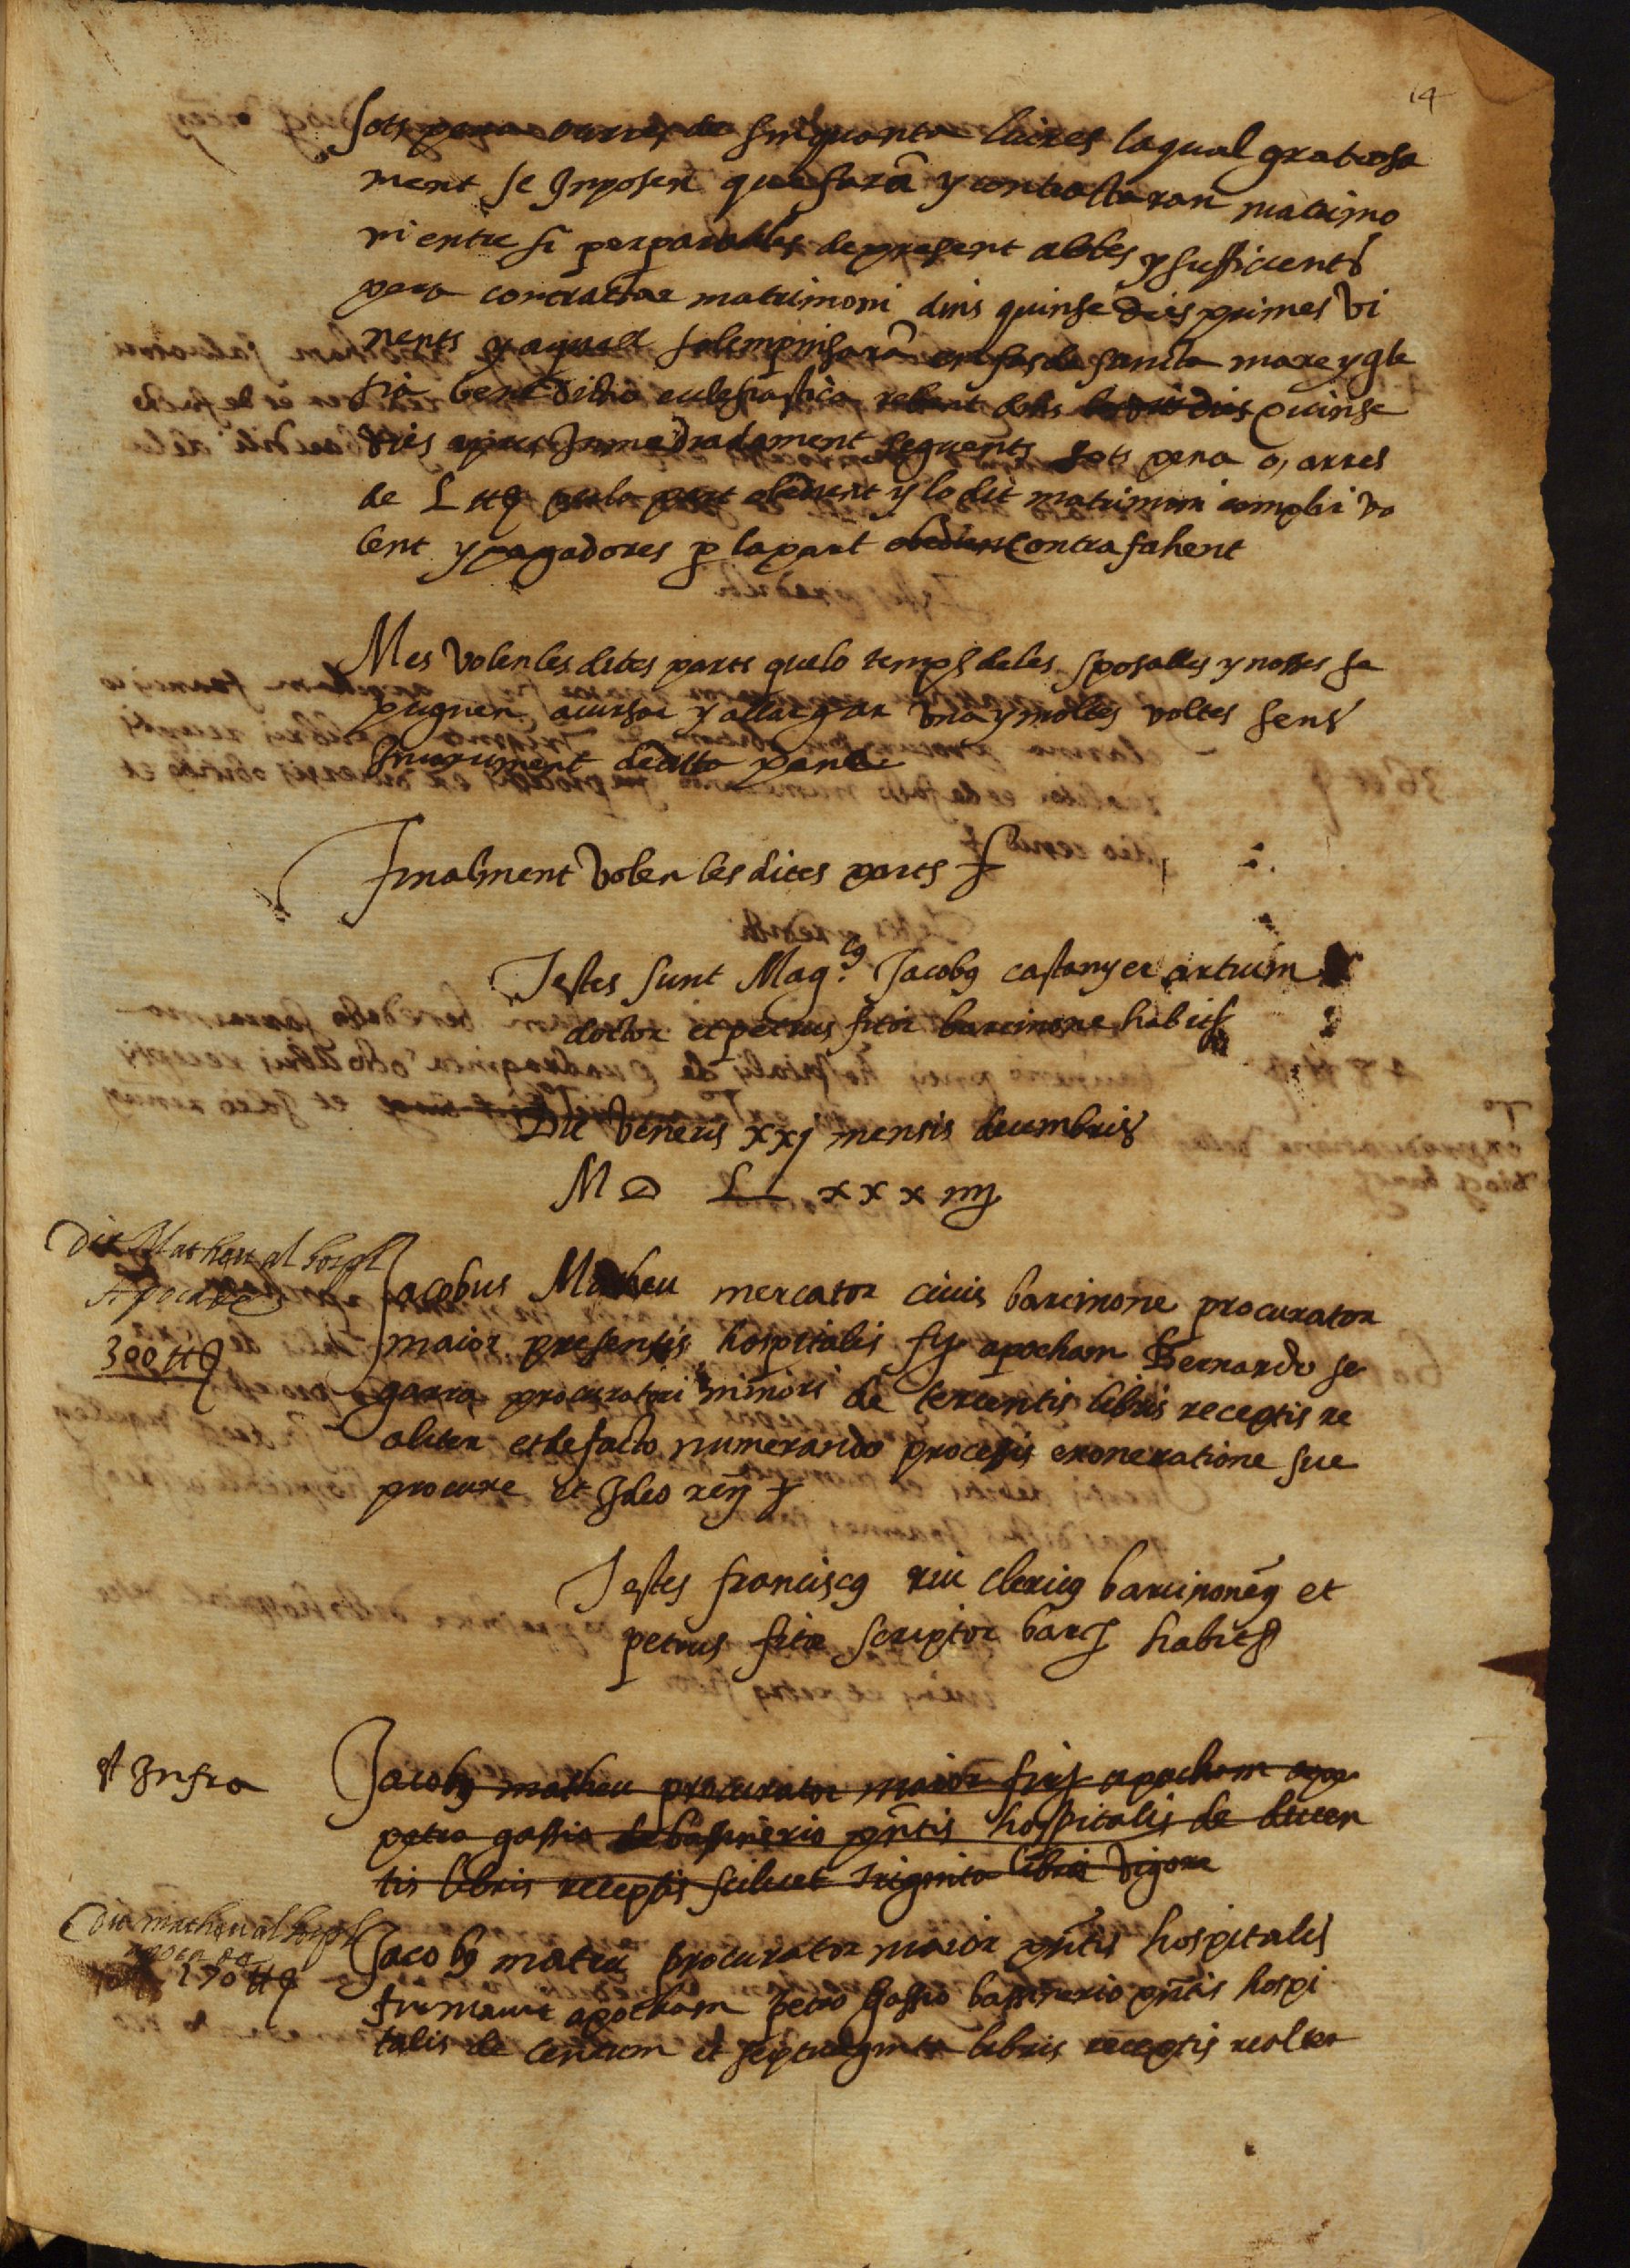 14
Sots pena o arres de sinquanta liures laqual gratiosa
ment se Inposen que faran y contractaran matrimo
ni entre si per paraules de present abtes y sufficients
pera contractar matrimoni dins quinse dies primes vi
nents y aquell solempnisaran en fas de sancta mare ygle
sia benedictio ecclesiastica rebent dins los vuit dies quinse
dies apres Inmediadament seguents sots pena o, arres
de L ₶ per la part obedient y lo dit matrimoni complir vo
lent y pagadores p la part obedient contrafahent
Mes volen les dites parts que lo temps de les sposalles y nosses se
puguen acursar y allargar una y moltes voltes sens
Incurriment de dita pena
Finalment volen les dites parts
Testes sunt Mag.cus Jacobus castanyer artium
doctor et petrus fitor barcinone habits
Die veneris xxj mensis decembris
M D L xxx iiij
Die Matheu al hospl
Apocha de
300 ₶
Jacobus Matheu mercator ciuis barcinone procurator
maior presentis hospitalis fir apocham Bernardo se
garra procuratori minori de tercentis libris receptis re
aliter et de facto numerando processit exoneratione sue
procure et Ideo ren
Testes franciscus riu clericus barcinonen et
petrus fitor scriptor barc habits
Infra
Jacobus matheu procurator maior firj apocham apo
petro gassio de bassinerio pntis hospitalis de ducen
tis libris receptis scilicet triginta libris vigore
Die matheu al hospl
apocha de
170 ₶
Jacobus mateu procurator maior pntis hospitalis
firmauit apocham petro gassio bassinerio pntis hospi
talis de centum et septuaginta libris receptis realiter